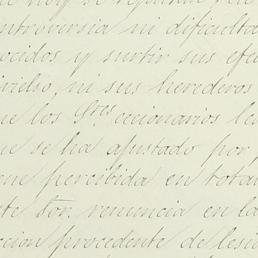 ntroversia ni dificulta
ocidos y surtir sus efec
ni sus herederos
ue los Sres. ccionarios le
ue se ha ajustado por
ene percibida en tota
te Sor. renuncia en la
ccion procedente de lesi